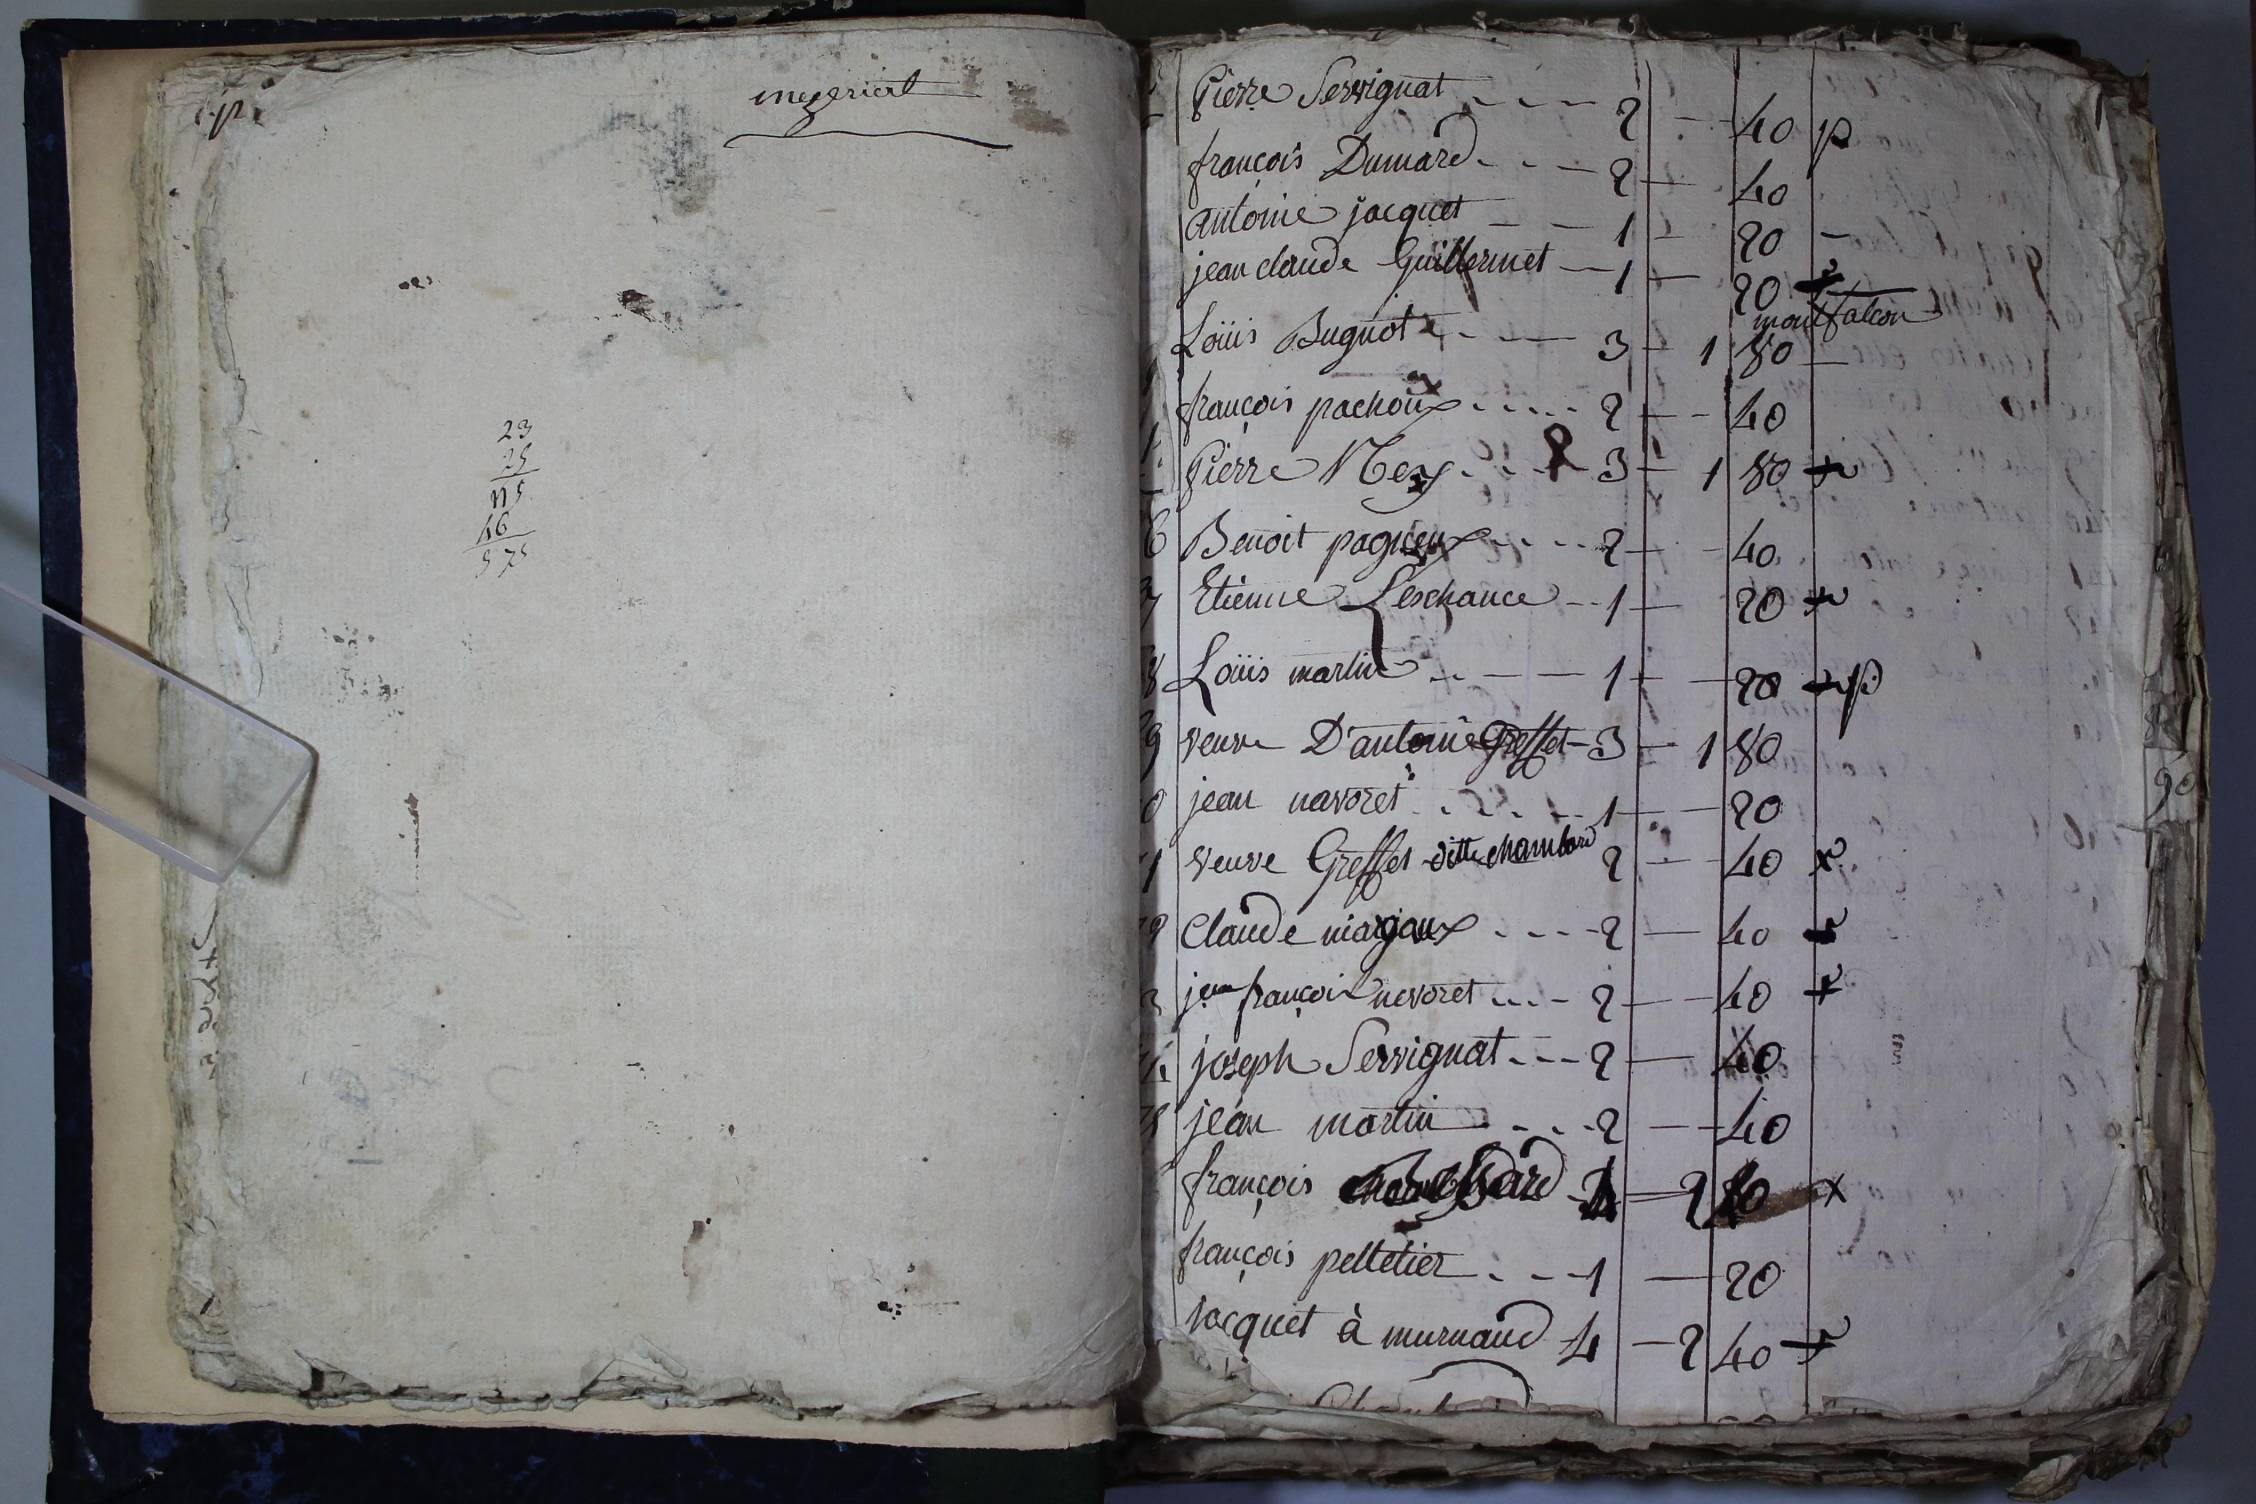 mezeriat
23
25
115
46
575
Pierre Servignat - - - 2 - - 40 p
françois Dumard - - - 2 - 40
antoine jacquet - - - 1 - 20 -
jean claude Guillermet - 1 - 20
montfalcon
Loüis Buguot - - - 3 - 1 80 -
françois pachoux - - - - 2 - - 40
Pierre Mey - - - 3 - 1 80
Benoit pagneux - - - - 2 - - 40
Etienne Leschance - - 1 - 20
Loüis martin - - - - 1 - - 20 p
veuve D'antoine Greffet - 3 - 1 80
jean navoret - - - - 1 - - 20
veuve Greffet ditte chambard 2 - 40 x
Claude marjaux - - - - 2 - 40
jean françois nevoret - - - 2 - - 40
joseph Servignat - - - 2 - 40
jean martin - - - 2 - - 40
françois - 2 x
françois pelletier - - - 1 - 20
Jacquet à murnaud 4 - 2 40